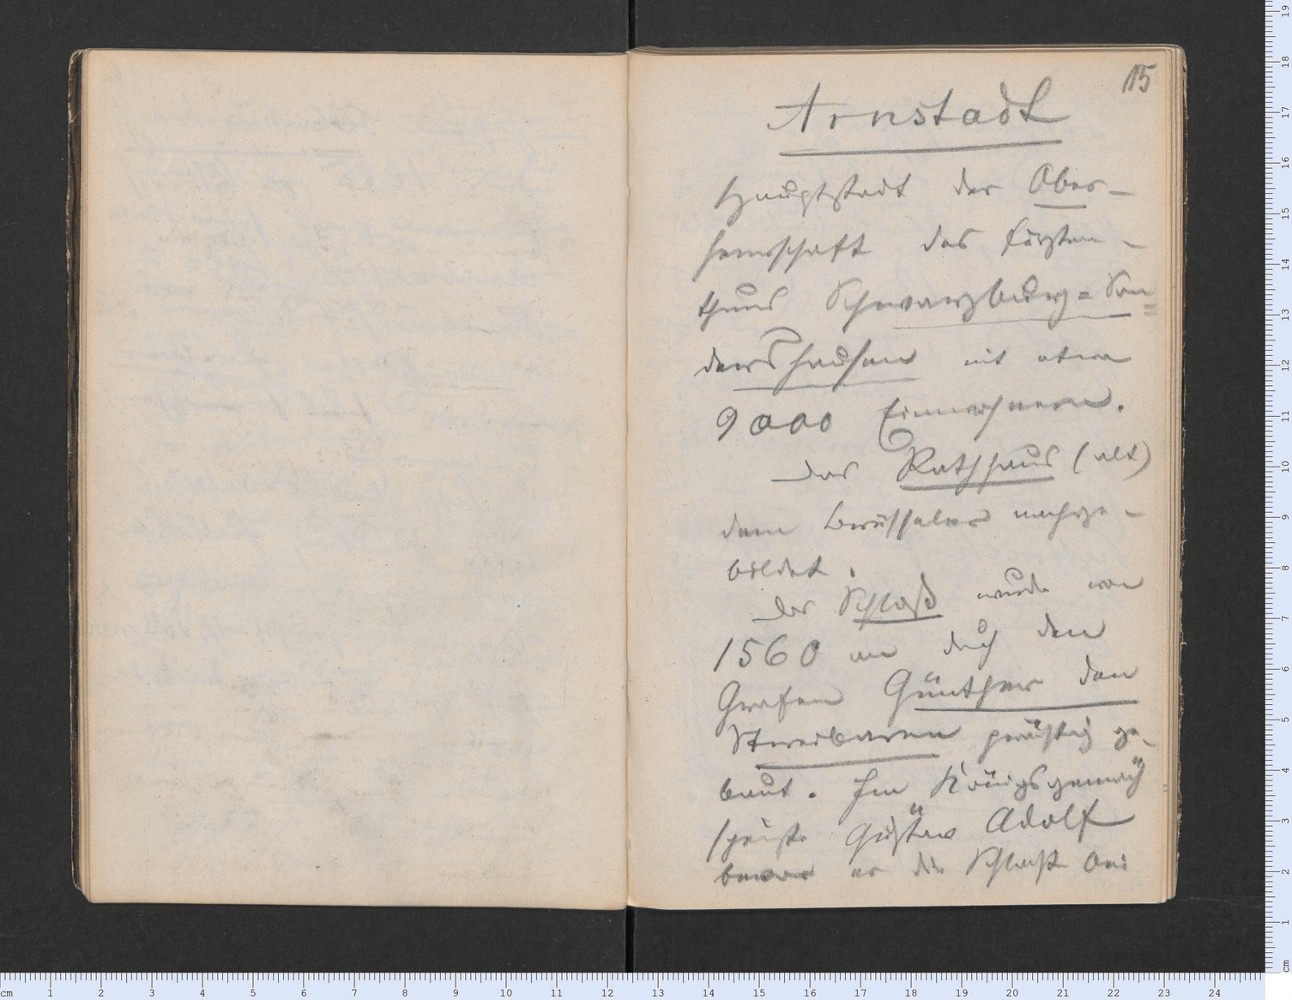 15
Arnstadt
Hauptstadt der Ober-
herrschaft des Fürsten-
thums Schwarzburg=Son
dershausen mit etwa
9000 Einwohnern.
Das Rathhaus (alt)
dem Brüsseler nachge-
bildet.
Das Schloß wurde von
1560 an durch den
Grafen Günther den
Streitbaren prächtig ge-
baut. Im Königsgemach
speiste Gustav Adolf
bevor er die Schlacht bei